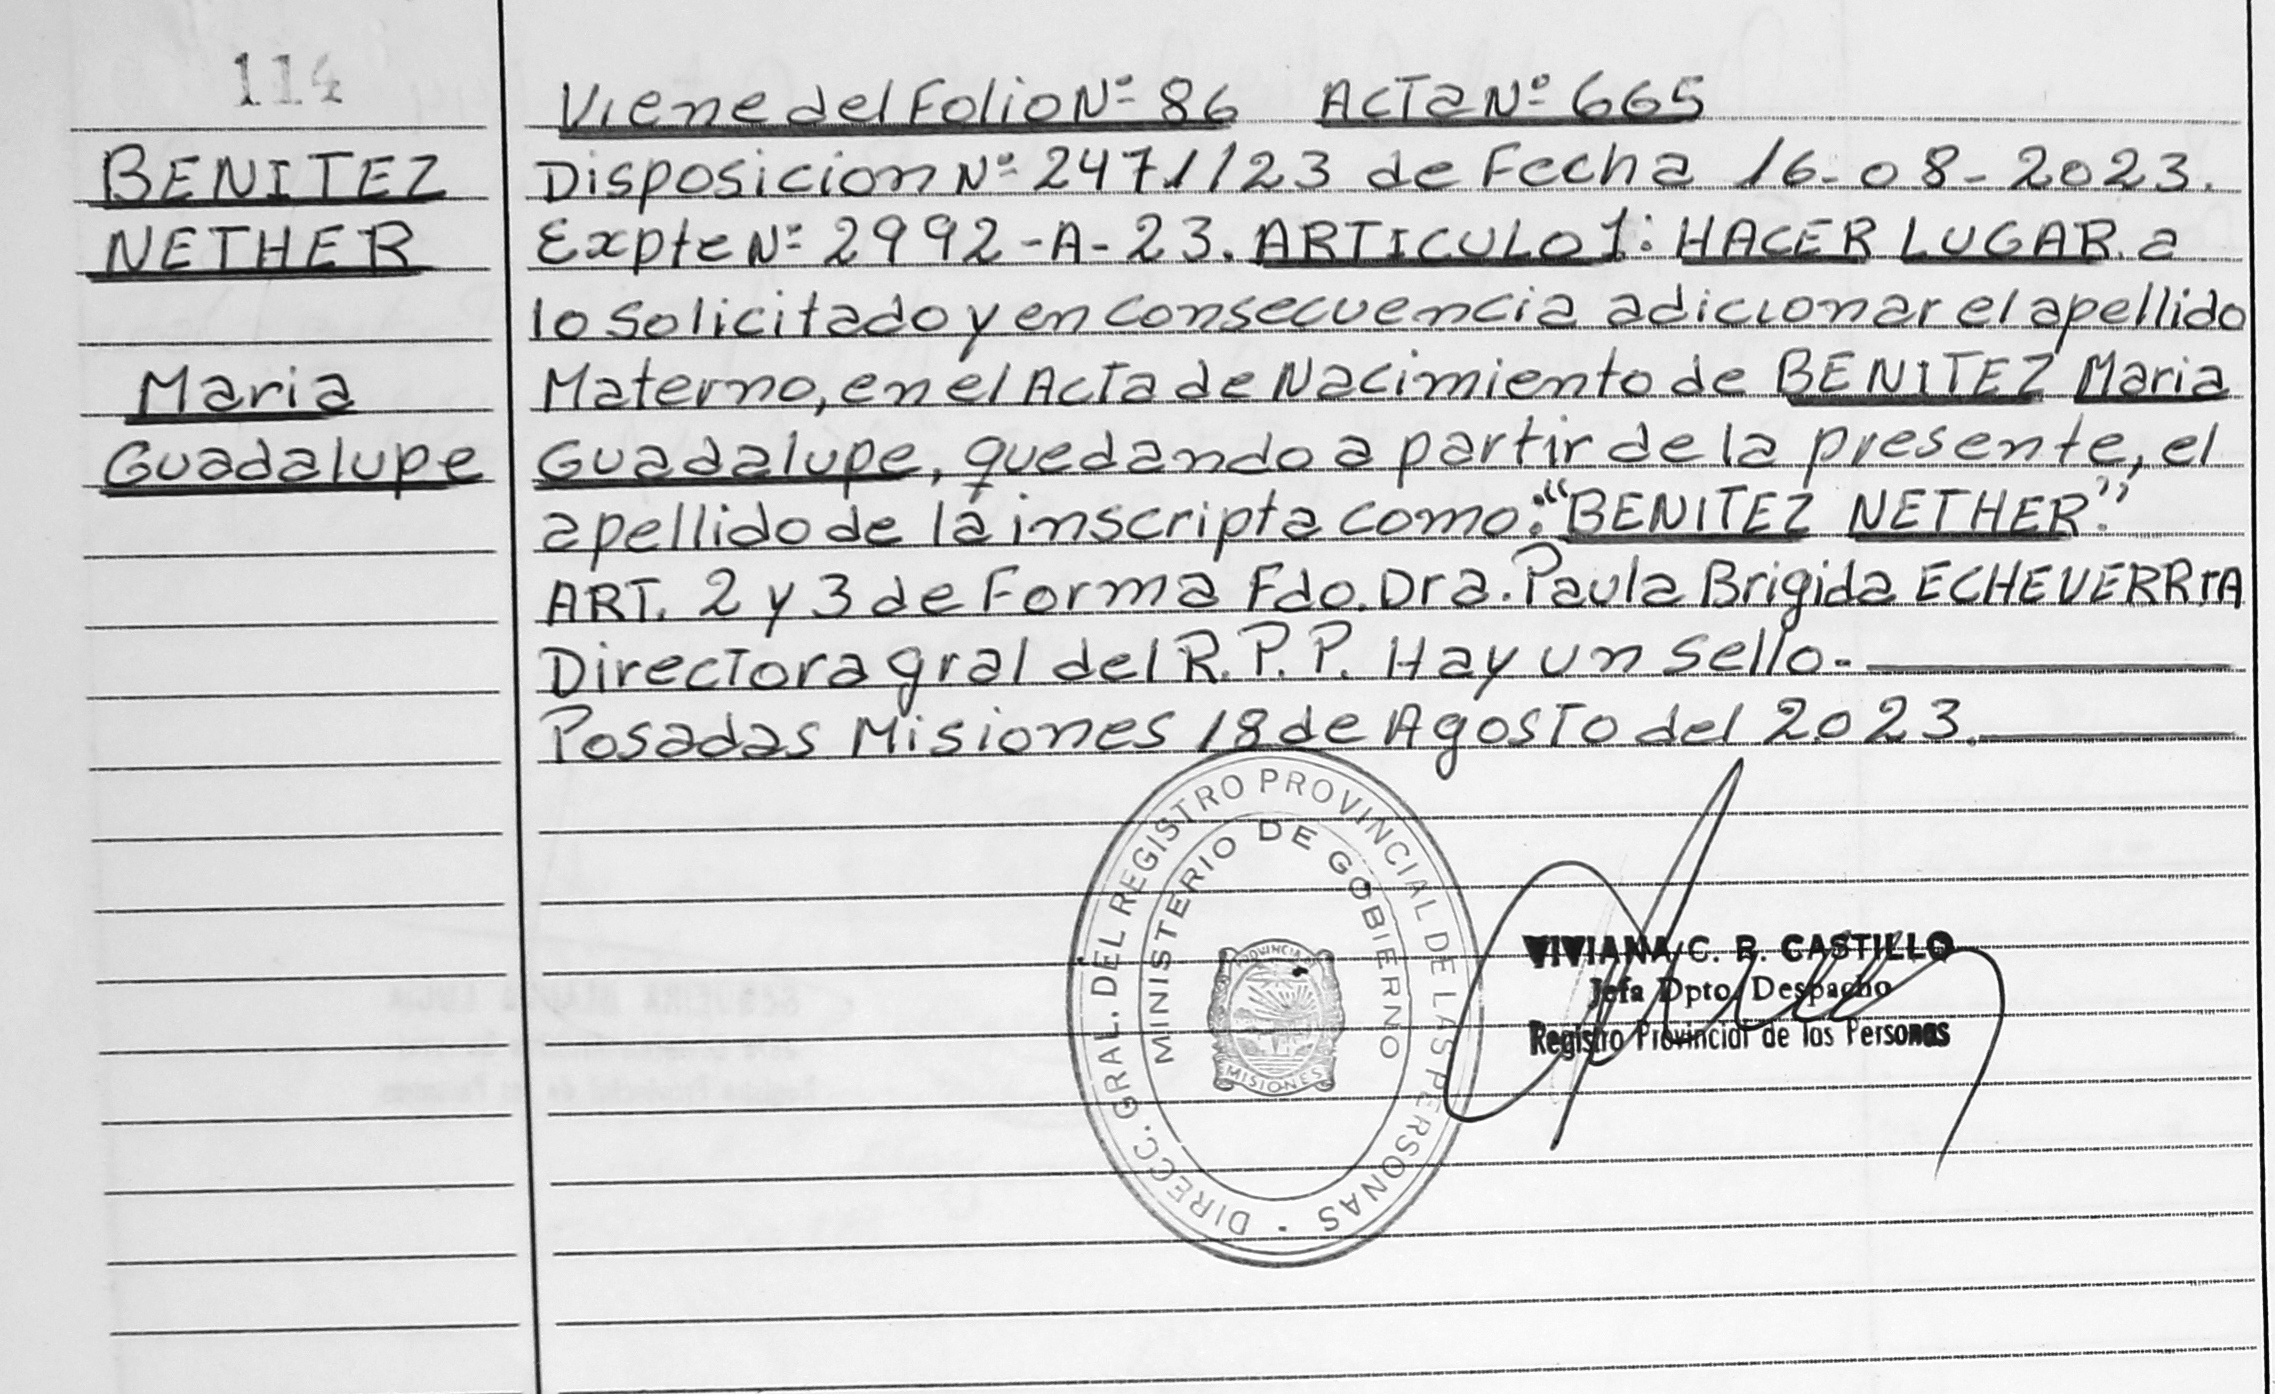 114
Viene del Folio Nº 86 Acta Nº 665
BENITEZ
NETHER
Maria
Guadalupe
Disposicion Nº 2471/23 de Fecha 16-08-2023.
Expte Nº 2992-A-23. ARTICULO 1: HACER LUGAR a
lo solicitado y en consecuencia adicionar el apellido
Materno, en el Acta de Nacimiento de BENITEZ Maria
Guadalupe, quedando a partir de la presente, el
apellido de la inscripta como: "BENITEZ NETHER."
ART. 2 y 3 de Forma Fdo. Dra. Paula Brigida ECHEVERRIA
Directora gral del R.P.P. Hay un sello.
Posadas Misiones 18 de Agosto del 2023.
DIRECC. GRAL. DEL REGISTRO PROVINCIAL DE LAS PERSONAS
MINISTERIO DE GOBIERNO
PROVINCIA D
MISIONES
VIVIANA C. R. CASTILLO
Jefa Dpto. Despacho
Registro Provincial de las Personas